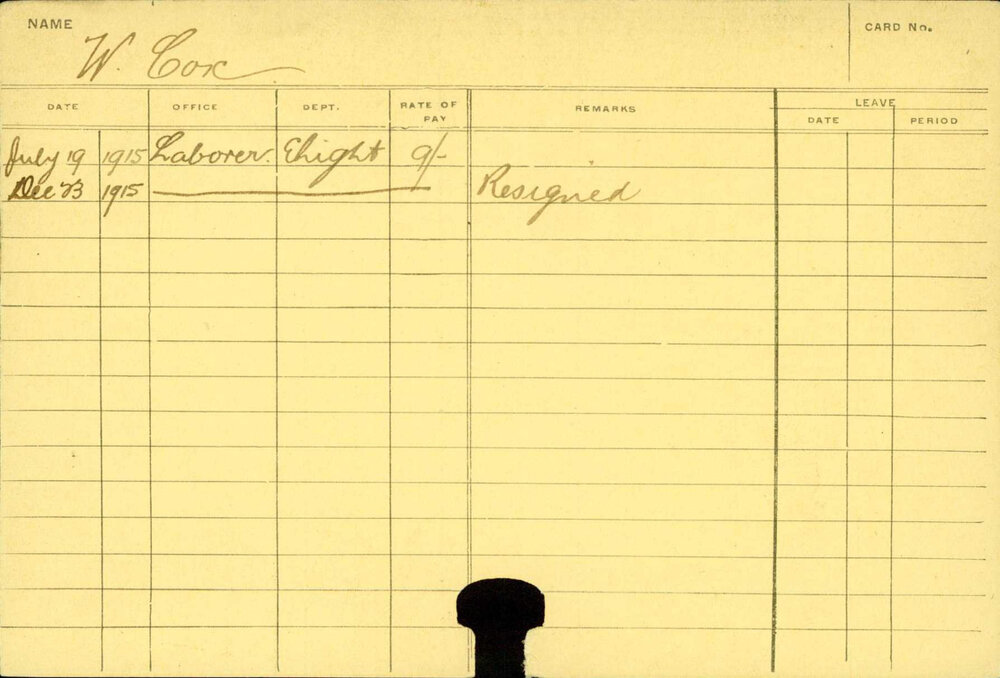 NAME
W. Cox
CARD No.
DATE OFFICE DEPT. RATE OF PAY REMARKS LEAVE
DATE PERIOD
July 19 1915 Laborer. Elight 9/-
Dec 23 1915 Resigned